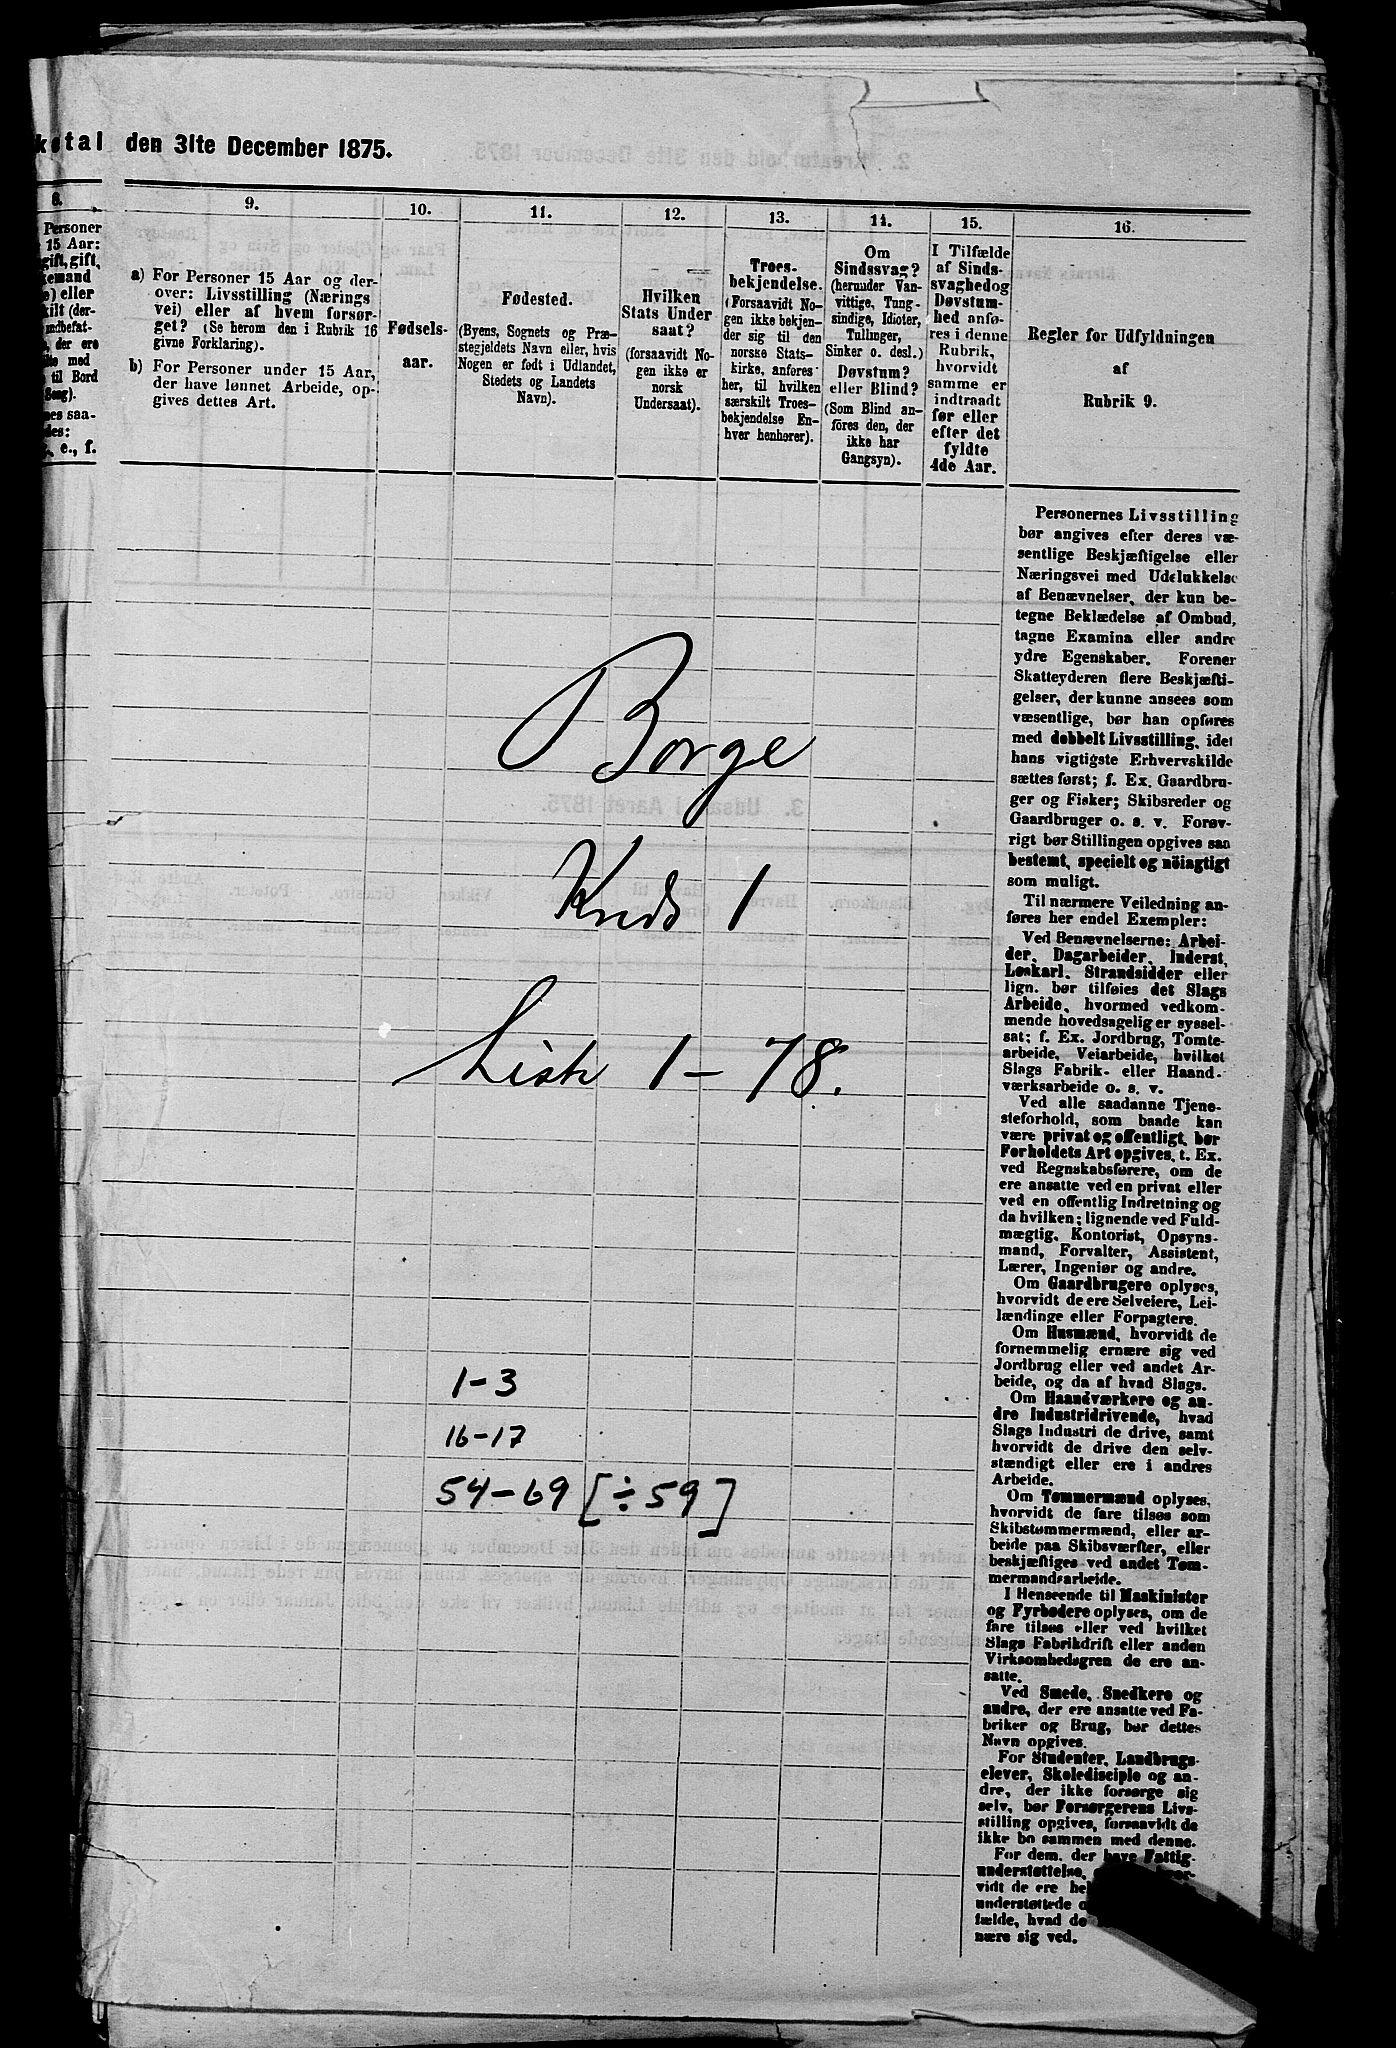 den 31te December 1875.
8.
Personer
15 Aar:
gift, gift,
kemand
eller
kilt (der-
ndbefat-
der ere
med
til Bord
Seng).
nes saa-
des:
e., f.
9.
a) For Personer 15 Aar og der-
over: Livsstilling (Nærings
vei) eller af hvem forsør-
get? (Se herom den i Rubrik 16
givne Forklaring).
b) For Personer under 15 Aar,
der have lønnet Arbeide, op-
gives dettes Art.
10.
Fødsels-
aar.
11.
Fødested.
(Byens, Sognets og Præ-
stegjeldets Navn eller, hvis
Nogen er født i Udlandet,
Stedets og Landets
Navn).
12.
Hvilken
Stats Under
saat?
(forsaavidt No-
gen ikke er
norsk
Undersaat).
13.
Troes-
bekjendelse.
(Forsaavidt No-
gen ikke bekjen-
der sig til den
norske Stats-
kirke, anføres
her, til hvilken
særskilt Troes-
bekjendelse En-
hver henhører).
14.
Om
Sindssvag?
(herunder Van-
vittige, Tung-
sindige, Idioter,
Tullinger,
Sinker o. desl.)
Døvstum?
eller Blind?
(Som Blind an-
føres den, der
ikke har
Gangsyn).
15.
I Tilfælde
af Sinds-
svaghed og
Døvstum-
hed anfø-
res i denne
Rubrik,
hvorvidt
samme er
indtraadt
før eller
efter det
fyldte
4de Aar.
16.
Regler for Udfyldningen
af
Rubrik 9.
Personernes Livsstilling
bør angives efter deres væ-
sentlige Beskjæftigelse eller
Næringsvei med Udelukkelse
af Benævnelser, der kun be-
tegne Beklædelse af Ombud,
tagne Examina eller andre
ydre Egenskaber. Forener
Skatteyderen flere Beskjæfti-
gelser, der kunne ansees som
væsentlige, bør han opføres
med dobbelt Livsstilling, idet
hans vigtigste Erhvervskilde
sættes først; f. Ex. Gaardbru-
ger og Fisker; Skibsreder og
Gaardbruger o. s. v. Forøv-
rigt bør Stillingen opgives saa
bestemt, specielt og nöiagtigt
som muligt.
Til nærmere Veiledning an-
føres her endel Exempler:
Ved Benævnelserne: Arbei-
der, Dagarbeider, Inderst,
Løskarl, Strandsidder eller
lign. bør tilføies det Slags
Arbeide, hvormed vedkom-
mende hovedsagelig er syssel-
sat; f. Ex. Jordbrug, Tomte-
arbeide, Veiarbeide, hvilket
Slags Fabrik- eller Haand-
værksarbeide o. s. v.
Ved alle saadanne Tjene-
steforhold, som baade kan
være privat og offentligt, bør
Forholdets Art opgives, t. Ex.
ved Regnskabsførere, om de
ere ansatte ved en privat eller
ved en offentlig Indretning og
da hvilken; lignende ved Fuld-
mægtig, Kontorist, Opsyns-
mand, Forvalter, Assistent,
Lærer, Ingeniør og andre.
Om Gaardbrugere oplyses,
hvorvidt de ere Selveiere, Lei-
lændinge eller Forpagtere.
Om Husmænd, hvorvidt de
fornemmelig ernære sig ved
Jordbrug eller ved andet Ar-
beide, og da af hvad Slags.
Om Haandværkere og an-
dre Industridrivende, hvad
Slags Industri de drive, samt
hvorvidt de drive den selv-
stændigt eller ere i andres
Arbeide.
Om Tømmermænd oplyses,
hvorvidt de fare tilsøs som
Skibstømmermænd, eller ar-
beide paa Skibsværfter, eller
beskjæftiges ved andet Tøm-
mermandsarbeide.
I Henseende til Maskinister
og Fyrbødere oplyses, om de
fare tilsøs eller ved hvilket
Slags Fabrikdrift eller anden
Virksomhedsgren de ere an-
satte.
Ved Smede, Snedkere og
andre, der ere ansatte ved Fa-
briker og Brug, bør dettes
Navn opgives.
For Studenter, Landbrugs-
elever, Skoledisciple og an-
dre, der ikke forsørge sig
selv, bør Forsørgerens Livs-
stilling opgives, forsaavidt de
ikke bo sammen med denne.
For dem, der have Fattig-
understøttelse,
vidt de ere
understøttede
fælde, hvad de
nære sig ved.
Borge
Kreds 1
Liste 1 – 78.
1-3
16-17
54-69 [÷59]